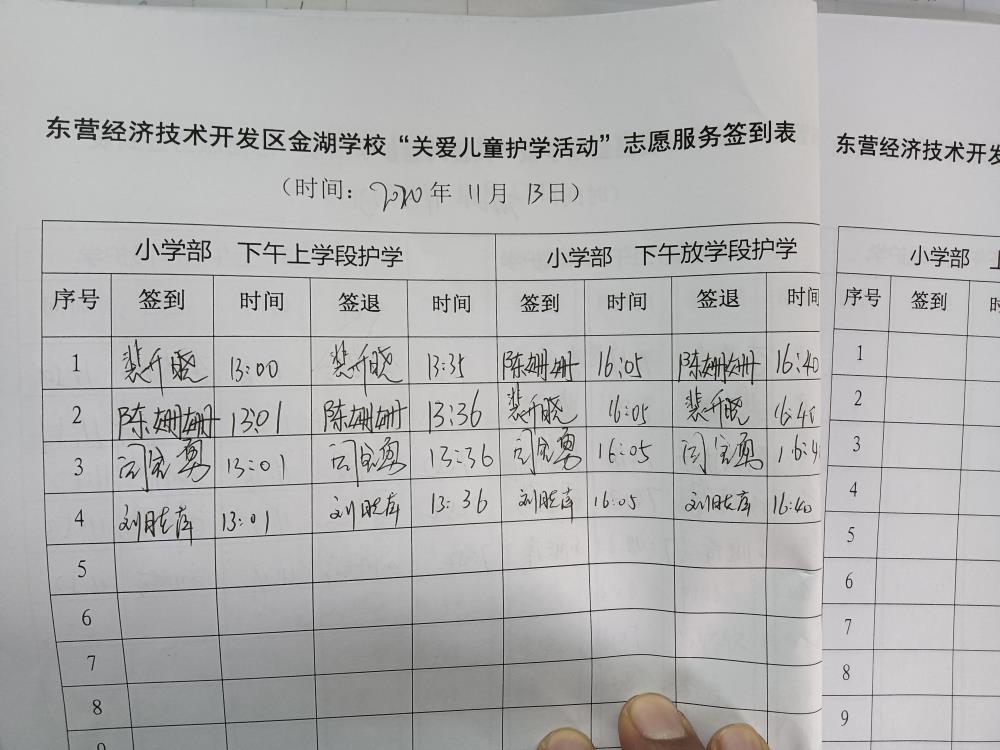 东营经济技术开发区金湖学校“关爱儿童护学活动”志愿服务签到表
（时间：2020年 11月 13日）
小学部 下午上学段护学 小学部 下午放学段护学
序号 签到 时间 签退 时间 签到 时间 签退 时间
1 裴千晓 13:00 裴千晓 13:35 陈姗姗 16:05 陈姗姗 16:40
2 陈姗姗 13:01 陈姗姗 13:36 裴千晓 16:05 裴千晓 16:40
3 13:01 13:36 16:05 16:4
4 13:01 13:36 16:05 16:40
5
6
7
8
9
东营经济技术开发
小学部 上
序号 签到 时
1
2
3
4
5
6
7
8
9